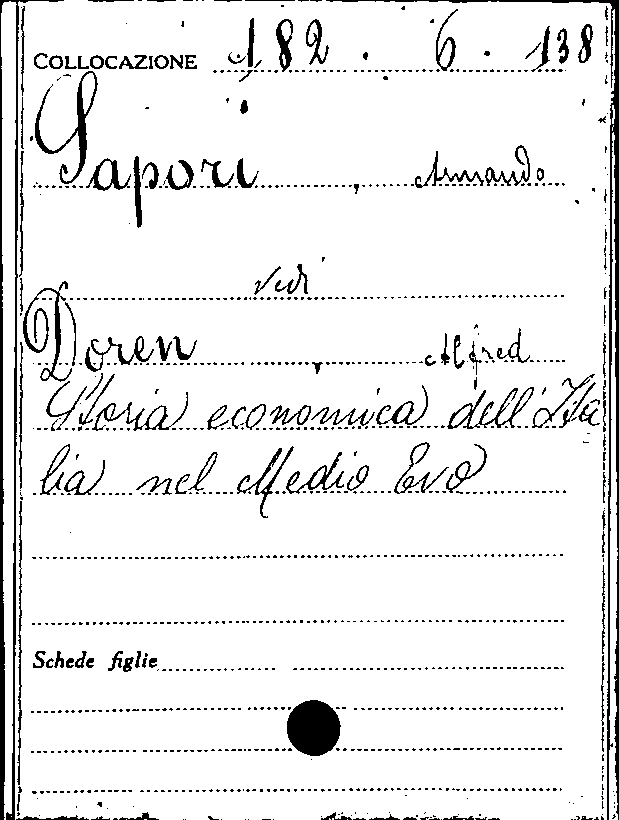 COLLOCAZIONE 182 . 6 . 138
Sapori , Armando
Vedi
Doren , Alfred
Storia economica dell'Ita
lia nel Medio Evo
Schede figlie